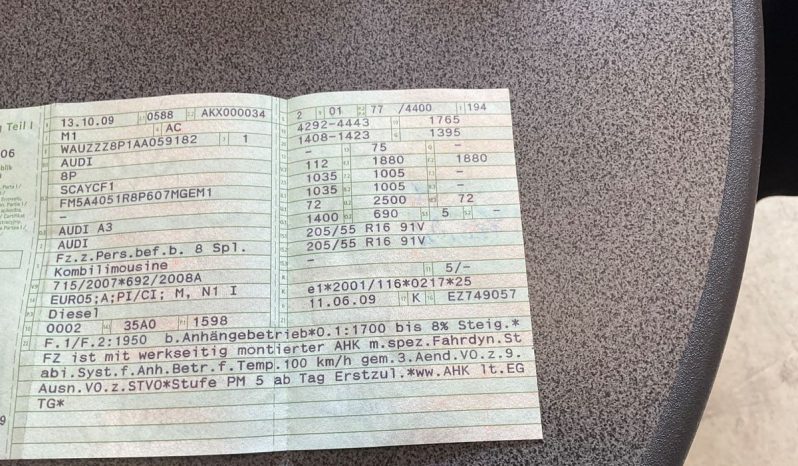 13.10.09 0588 AKX000034
M1 AC
WAUZZZ8P1AA059182 1
AUDI
8P
SCAYCF1
FM5A4051R8P607MGEM1
–
AUDI A3
AUDI
Fz.z.Pers.bef.b. 8 Spl.
Kombilimousine
715/2007*692/2008A
EURO5;A;PI/CI; M, N1 I
Diesel
0002 35A0 1598
2 01 77 /4400 194
4292-4443 1765
1408-1423 1395
– 75 –
112 1880 1880
1035 1005 –
1035 1005 –
72 2500 72
1400 690 5 –
205/55 R16 91V
205/55 R16 91V
–
5/–
e1*2001/116*0217*25
11.06.09 K EZ749057
F.1/F.2:1950 b.Anhängebetrieb*0.1:1700 bis 8% Steig.*
FZ ist mit werkseitig montierter AHK m.spez.Fahrdyn.St
abi.Syst.f.Anh.Betr.f.Temp.100 km/h gem.3.Aend.VO.z.9.
Ausn.VO.z.STVO*Stufe PM 5 ab Tag Erstzul.*ww.AHK lt.EG
TG*
Teil I
06